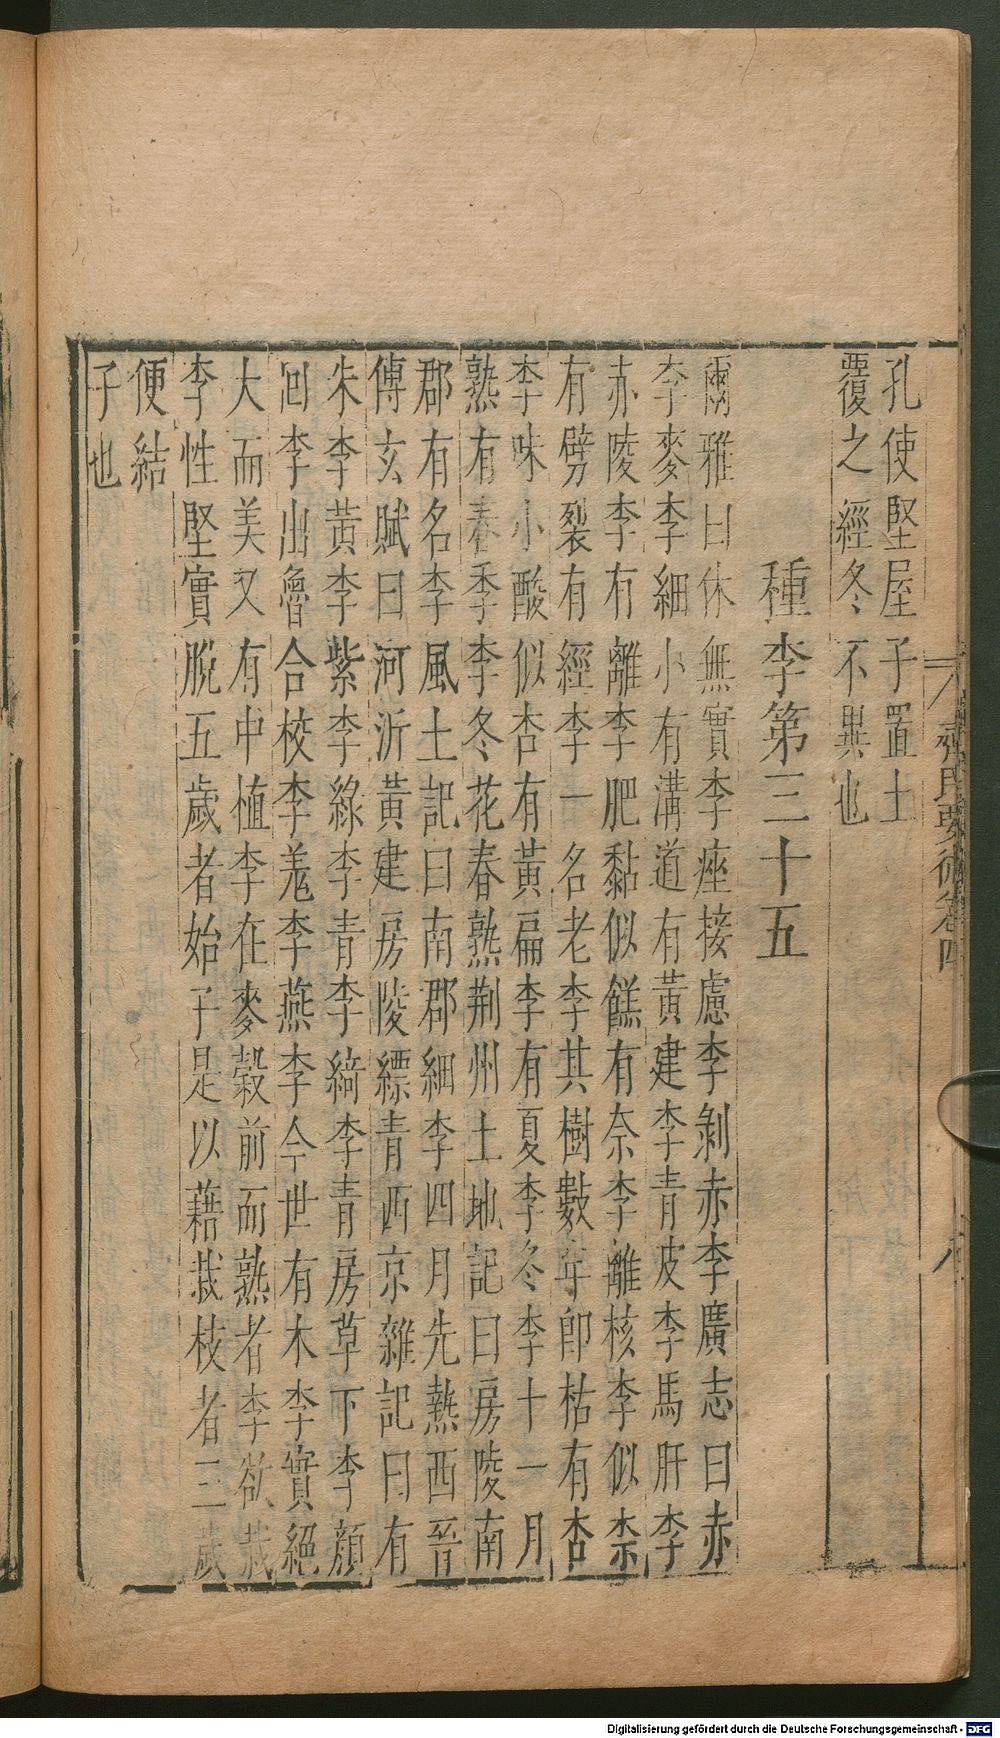 孔使堅屋子置土
覆之經冬不異也
種李第三十五
爾雅曰休無實李痤接慮李剝赤李廣志曰赤
李麥李細小有溝道有黃建李青皮李馬肝李
赤陵李有離李肥黏似餻有奈李離核李似柰
有劈裂有經李一名老李其樹數年卽枯有杏
李味小酸似杏有黃扁李有夏李冬李十一月
熟有春季李冬花春熟荆州土地記曰房陵南
郡有名李風土記曰南郡細李四月先熟西晉
傅玄賦曰河沂黃建房陵縹青西京雜記曰有
朱李黃李紫李綠李青李綺李青房草下李顏
回李出魯合校李羗李燕李今世有木李實絕
大而美又有中植李在麥穀前而熟者李欲栽
李性堅實脫五歲者始子是以藉栽枝者三歲
便結
子也
齊民要術卷四
八
Digitalisierung gefördert durch die Deutsche Forschungsgemeinschaft - DFG